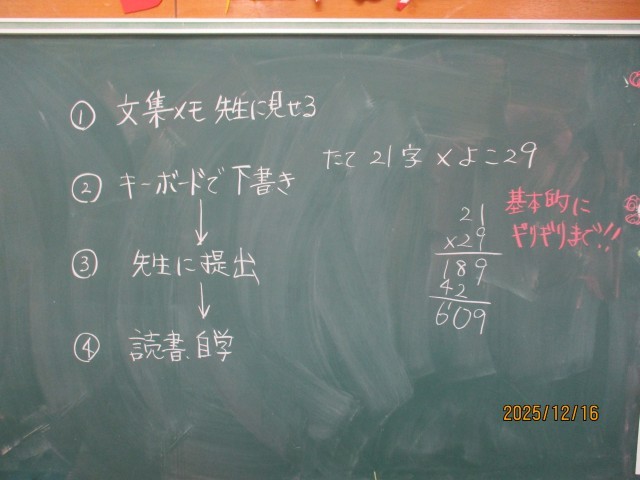 ① 文集メモ 先生に見せる
たて 21字 × よこ29
② キーボードで下書き
↓
③ 先生に提出
↓
④ 読書、自学
21
×29
189
42
609
基本的に
ギリギリまで!!
2025/12/16